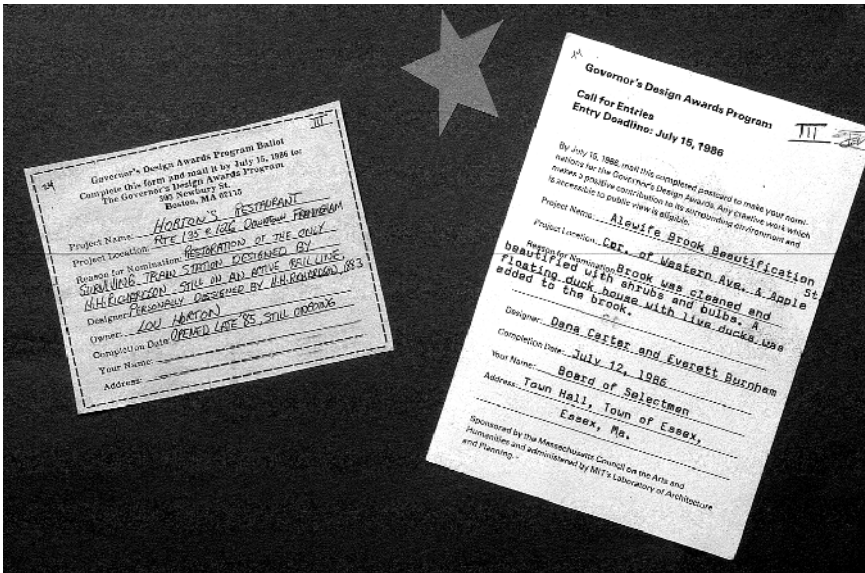 III
24
Governor's Design Awards Program Ballot
Complete this form and mail it by July 15, 1986 to:
The Governor's Design Awards Program
395 Newbury St.
Boston, MA 02115
Project Name: HORTON'S RESTAURANT
Project Location: RTE 135 & 126 DOWNTOWN FRAMINGHAM
Reason for Nomination: RESTORATION OF THE ONLY
SURVIVING TRAIN STATION DESIGNED BY
H.H. RICHARDSON STILL ON AN ACTIVE RAIL LINE.
Designer: PERSONALLY DESIGNED BY H.H. RICHARDSON, 1883
Owner: LOU HORTON
Completion Date: OPENED LATE '85, STILL ONGOING
Your Name:
Address:
Governor's Design Awards Program
III
Call for Entries
Entry Deadline: July 15, 1986
By July 15, 1986, mail this completed postcard to make your nomi-
nations for the Governor's Design Awards. Any creative work which
makes a positive contribution to its surrounding environment and
is accessible to public view is eligible.
Project Name: Alewife Brook Beautification
Project Location: Cor. of Western Ave. & Apple St
Reason for Nomination: Brook was cleaned and
beautified with shrubs and bulbs. A
floating duck house with live ducks was
added to the brook.
Designer: Dana Carter and Everett Burnham
Completion Date: July 12, 1986
Your Name: Board of Selectmen
Address: Town Hall, Town of Essex,
Essex, Ma.
Sponsored by the Massachusetts Council on the Arts and
Humanities and administered by MIT's Laboratory of Architecture
and Planning.